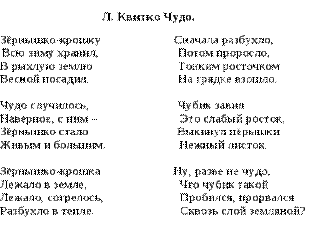 Л. Квитко Чудо.
Зёрнышко-крошку
Всю зиму хранил,
В рыхлую землю
Весной посадил.
Чудо случилось,
Наверное, с ним –
Зёрнышко стало
Живым и большим.
Зёрнышко-крошка
Лежало в земле,
Лежало, согрелось,
Разбухло в тепле.
Сначала разбухло,
Потом проросло,
Тонким росточком
На грядке взошло.
Чубик завил
Это слабый росток,
Выкинул пёрышки
Нежный листок.
Ну, разве не чудо,
Что чубик такой
Пробился, прорвался
Сквозь слой земляной?